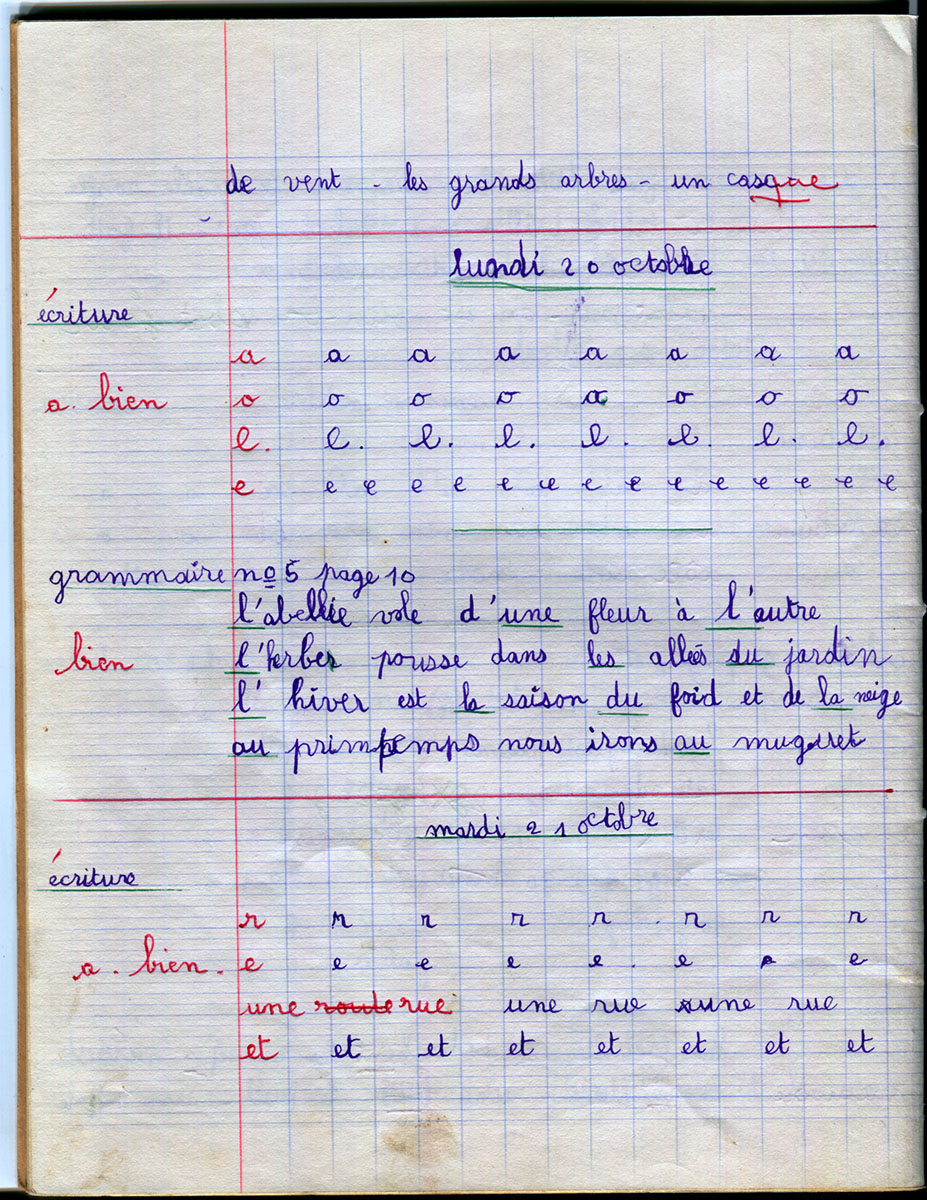 de vent - les grands arbres - un casque
lundi 20 octobre
écriture
a a a a a a a a
a. bien o o o o a o o o
l. l. l. l. l. l. l. l.
e e e e e e e e e e e e e e e
grammaire nº 5 page 10
l'abellie vole d'une fleur à l'autre
bien l'herber pousse dans les alleés du jardin
l' hiver est la saison du foid et de la neige
au printemps nous irons au muguet
mardi 21 octobre
écriture
r r r r r r r r
a. bien. e e e e e e e e
une route rue une rue une rue
et et et et et et et et